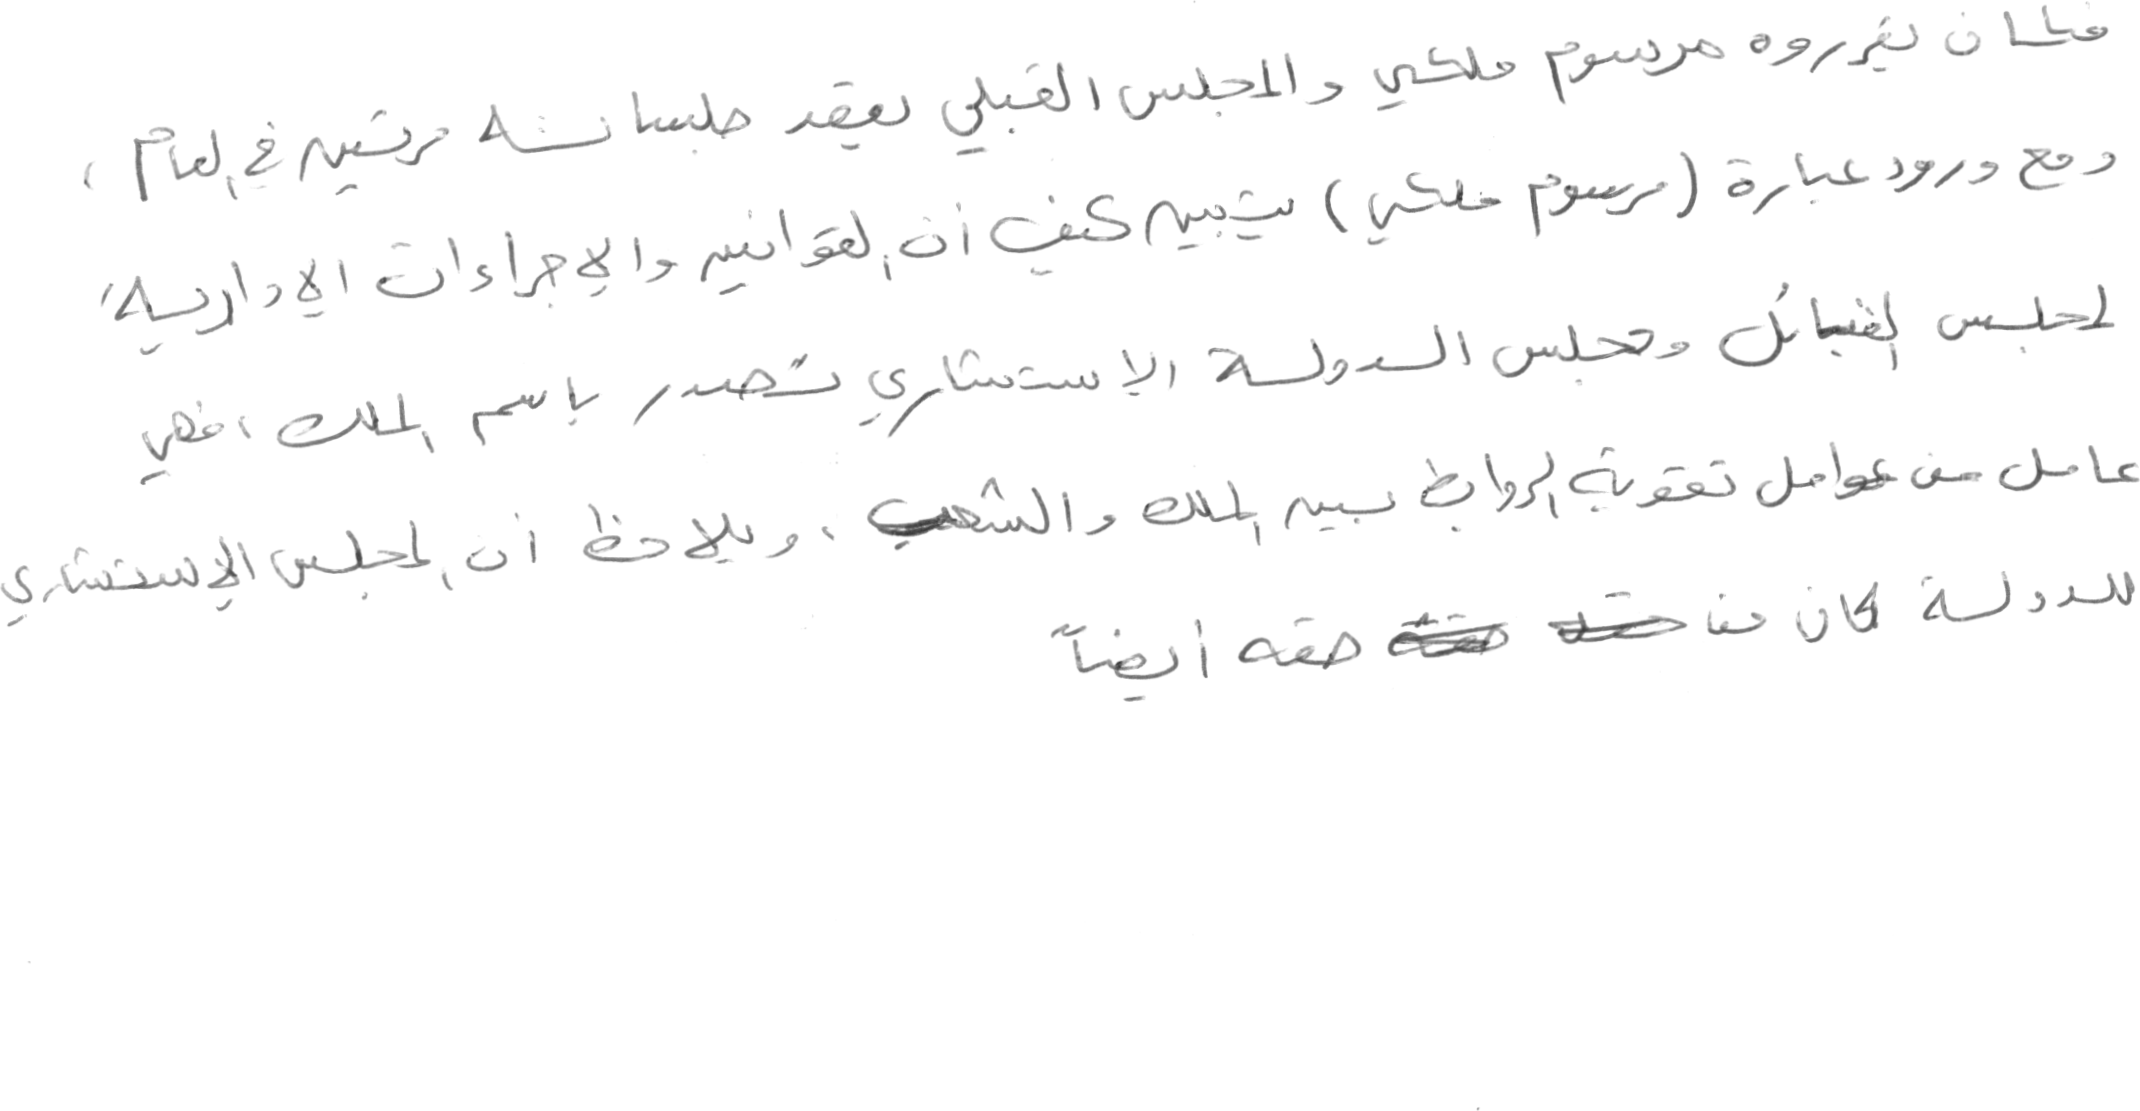 فكان يقرروه مرسوم ملكي والمجلس القبلي يعقد جلساته مرتين في العام ،
ومع ورود عبارة (مرسوم ملكي) يتبين كيف أن القوانين والإجراءات الادارية ،
لمجلس القبائل ومجلس الدولة الاستشاري تصدر باسم الملك ، فهي
عامل من عوامل تقوية الروابط بين الملك والشعب ، ويلاحظ أن المجلس الإستشاري
للدولة كان من حقه أيضاً